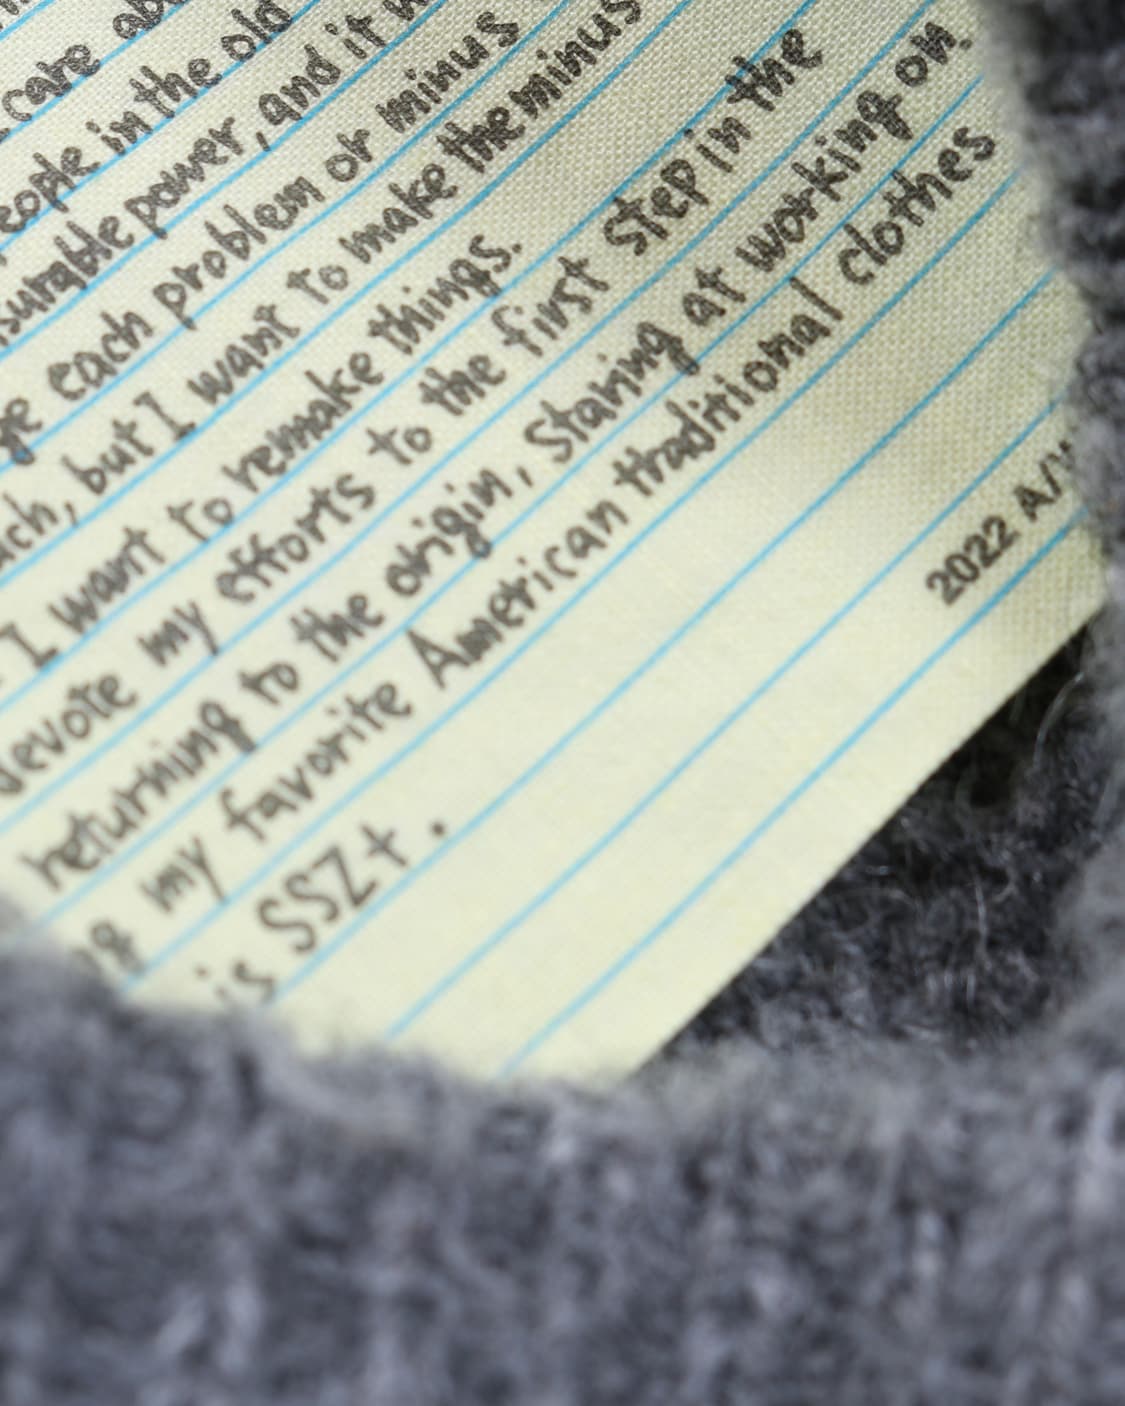 care
people in the old
surable power, and it
each problem or minus
but I want to make the minus
I want to remake things.
devote my efforts to the first step in the
returning to the origin, staring at working on.
my favorite American traditional clothes
is SSZt.
2022 A/